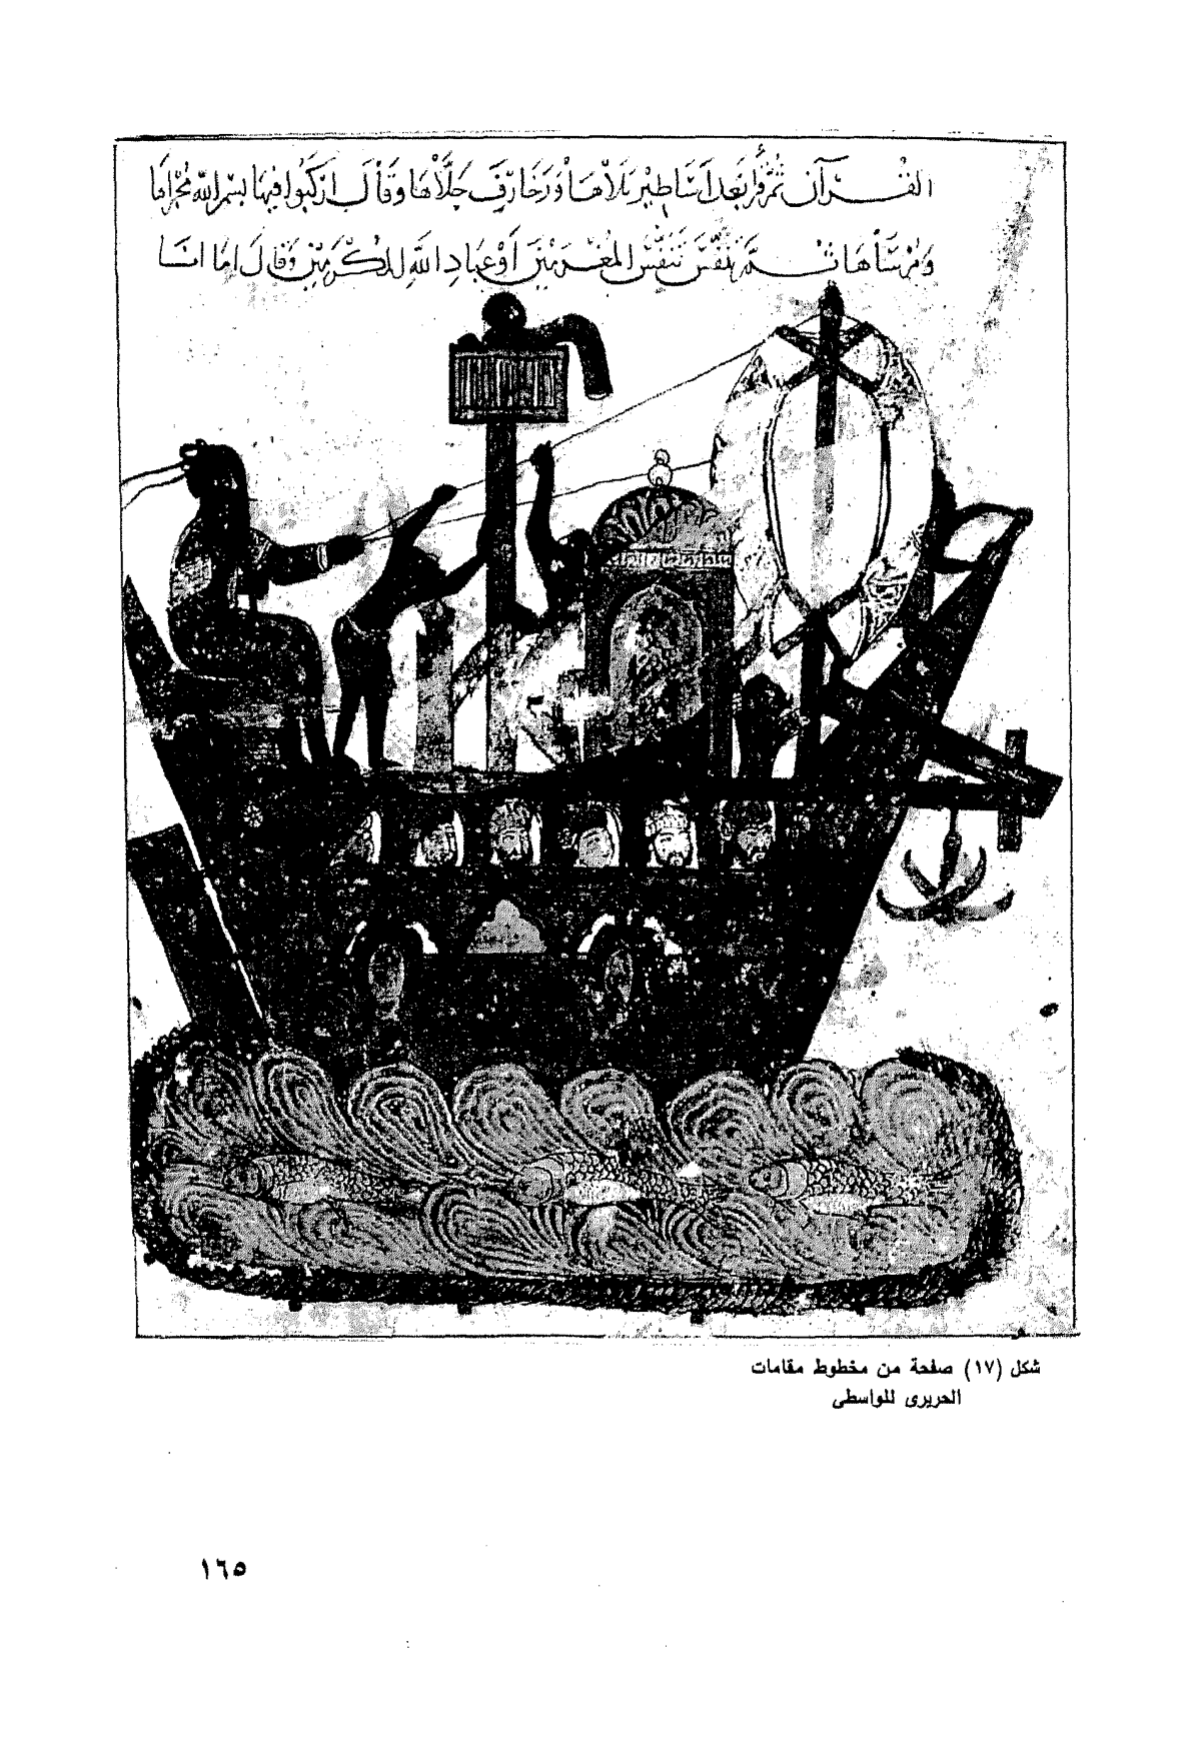 القرآن ثم قرأ بعد أساطير تلاها وزخارف جلاها وقال اركبوا فيها بسم الله مجراها
ومرساها ثم تنفس تنفس المغرمين أو عباد الله المكرمين وقال أما أنا
شكل (١٧) صفحة من مخطوط مقامات
الحريرى للواسطى
١٦٥